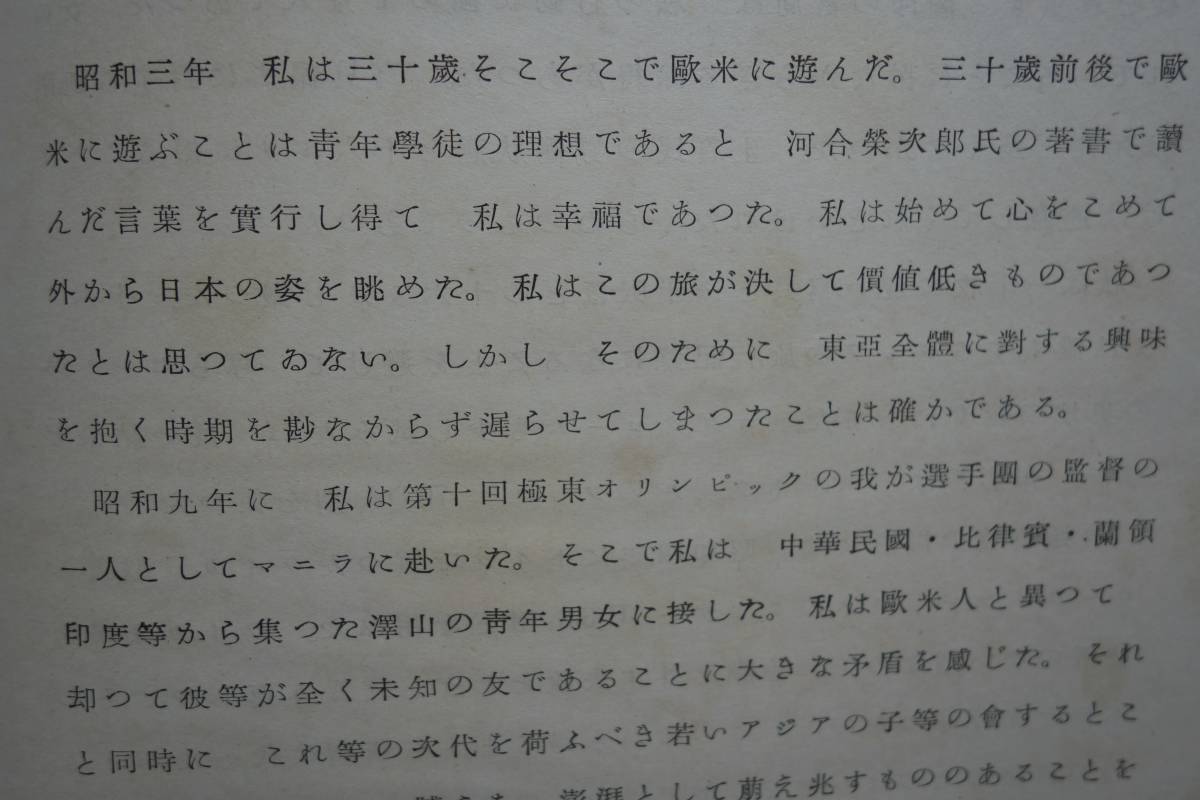 昭和三年　私は三十歲そこそこで歐米に遊んだ。三十歲前後で歐
米に遊ぶことは靑年學徒の理想であると　河合榮次郎氏の著書で讀
んだ言葉を實行し得て　私は幸福であつた。私は始めて心をこめて
外から日本の姿を眺めた。私はこの旅が決して價値低きものであつ
たとは思つてゐない。しかし　そのために　東亞全體に對する興味
を抱く時期を尠なからず遲らせてしまつたことは確かである。
昭和九年に　私は第十回極東オリンピックの我が選手團の監督の
一人としてマニラに赴いた。そこで私は　中華民國・比律賓・蘭領
印度等から集つた澤山の靑年男女に接した。私は歐米人と異つて
却つて彼等が全く未知の友であることに大きな矛盾を感じた。それ
と同時に　これ等の次代を荷ふべき若いアジアの子等の會するとこ
澎湃として萠え兆すもののあることを